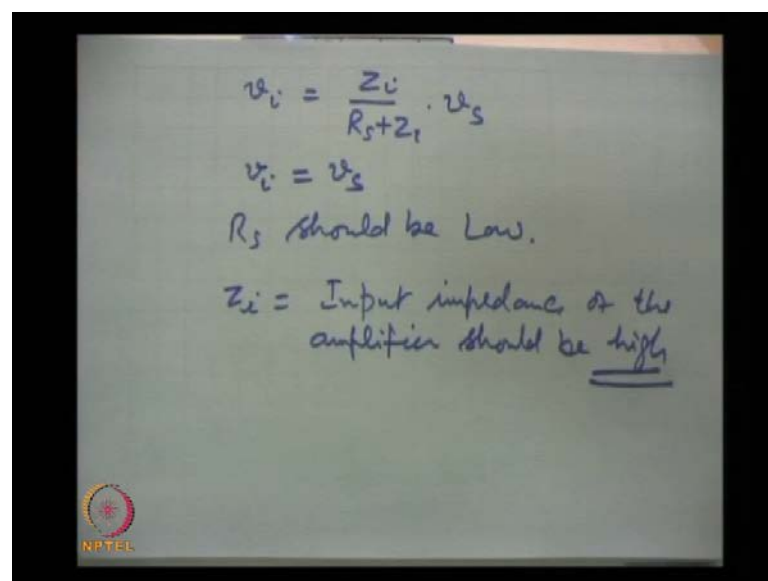 v_i = Z_i / (R_s + Z_i) . v_s
v_i = v_s
R_s should be Low.
Z_i = Input impedance of the
amplifier should be high
NPTEL